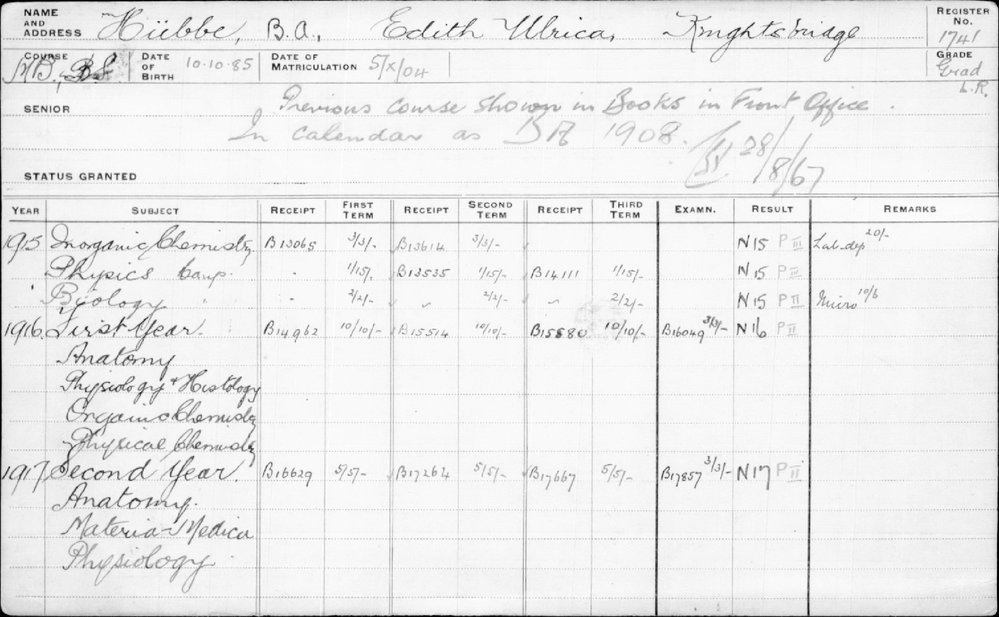 NAME AND ADDRESS Hübbe, B.A., Edith Ulrica, Knightsbridge REGISTER No. 1741
COURSE M.B., B.S. DATE OF BIRTH 10.10.85 DATE OF MATRICULATION 5/X/04 GRADE Grad L.R.
SENIOR Previous course shown in Books in Front Office.
In calendar as BA 1908. 28/8/67
STATUS GRANTED
YEAR SUBJECT RECEIPT FIRST TERM RECEIPT SECOND TERM RECEIPT THIRD TERM EXAMN. RESULT REMARKS
1915 Inorganic Chemistry B13065 3/3/- B13614 3/3/- N15 P III Lab. dep 20/-
Physics Comp. " 1/15/- B13535 1/15/- B14111 1/15/- N15 P II
Biology " " 2/2/- " 2/2/- " 2/2/- N15 P II Micro 10/6
1916 First Year. B14962 10/10/- B15514 10/10/- B15880 10/10/- B16049 3/3/- N16 P II
Anatomy
Physiology & Histology
Organic Chemistry
Physical Chemistry
1917 Second Year. B16629 5/5/- B17264 5/5/- B17667 5/5/- B17857 3/3/- N17 P II
Anatomy.
Materia-Medica
Physiology